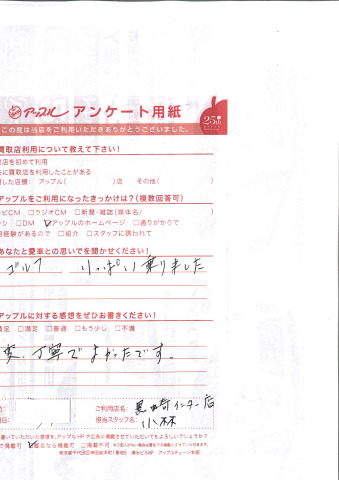 アップル アンケート用紙
25th
この度は当店をご利用いただきありがとうございました。
買取店利用について教えて下さい!
店を初めて利用
に買取店を利用したことがある
した店舗: アップル( )店 その他( )
アップルをご利用になったきっかけは?(複数回答可)
ビCM □ラジオCM □新聞・雑誌(媒体名/ )
シ □DM ☑アップルのホームページ □通りがかりで
経験があるので □紹介 □スタッフに誘われて
あなたと愛車との思いでを聞かせください!
ゴルフ いっぱい乗りました
アップルに対する感想をぜひお書きください!
足 □満足 □普通 □もう少し □不満
変、丁寧でよかったです。
ご利用店名: 黒崎インター店
日: 担当スタッフ名: 小林
書いていただいた感想を、アップルHPや広告に掲載させていただいてもよろしいでしょうか?
で掲載可 ☑匿名なら掲載可 □掲載不可